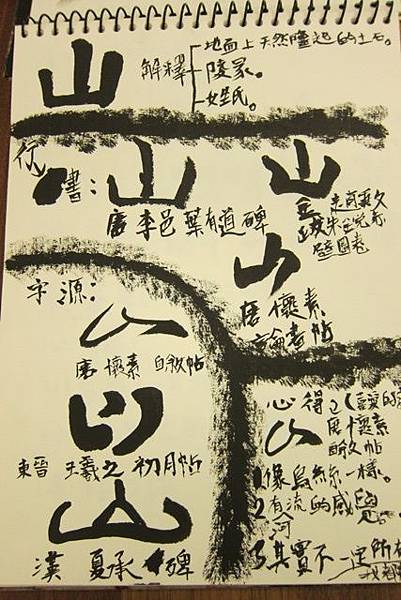 山
解釋
地面上天然隆起的土石。
陵冢。
姓氏。
行書：
山
唐 李邕 葉有道碑
山
山
唐 懷素
論書帖
字源：
山
唐 懷素 自敘帖
山
東晉 王羲之 初月帖
山
漢 夏承 碑
心得
山
懷素
1.像烏絲一樣。
2.有河流的感覺。
3.其實不一定所有